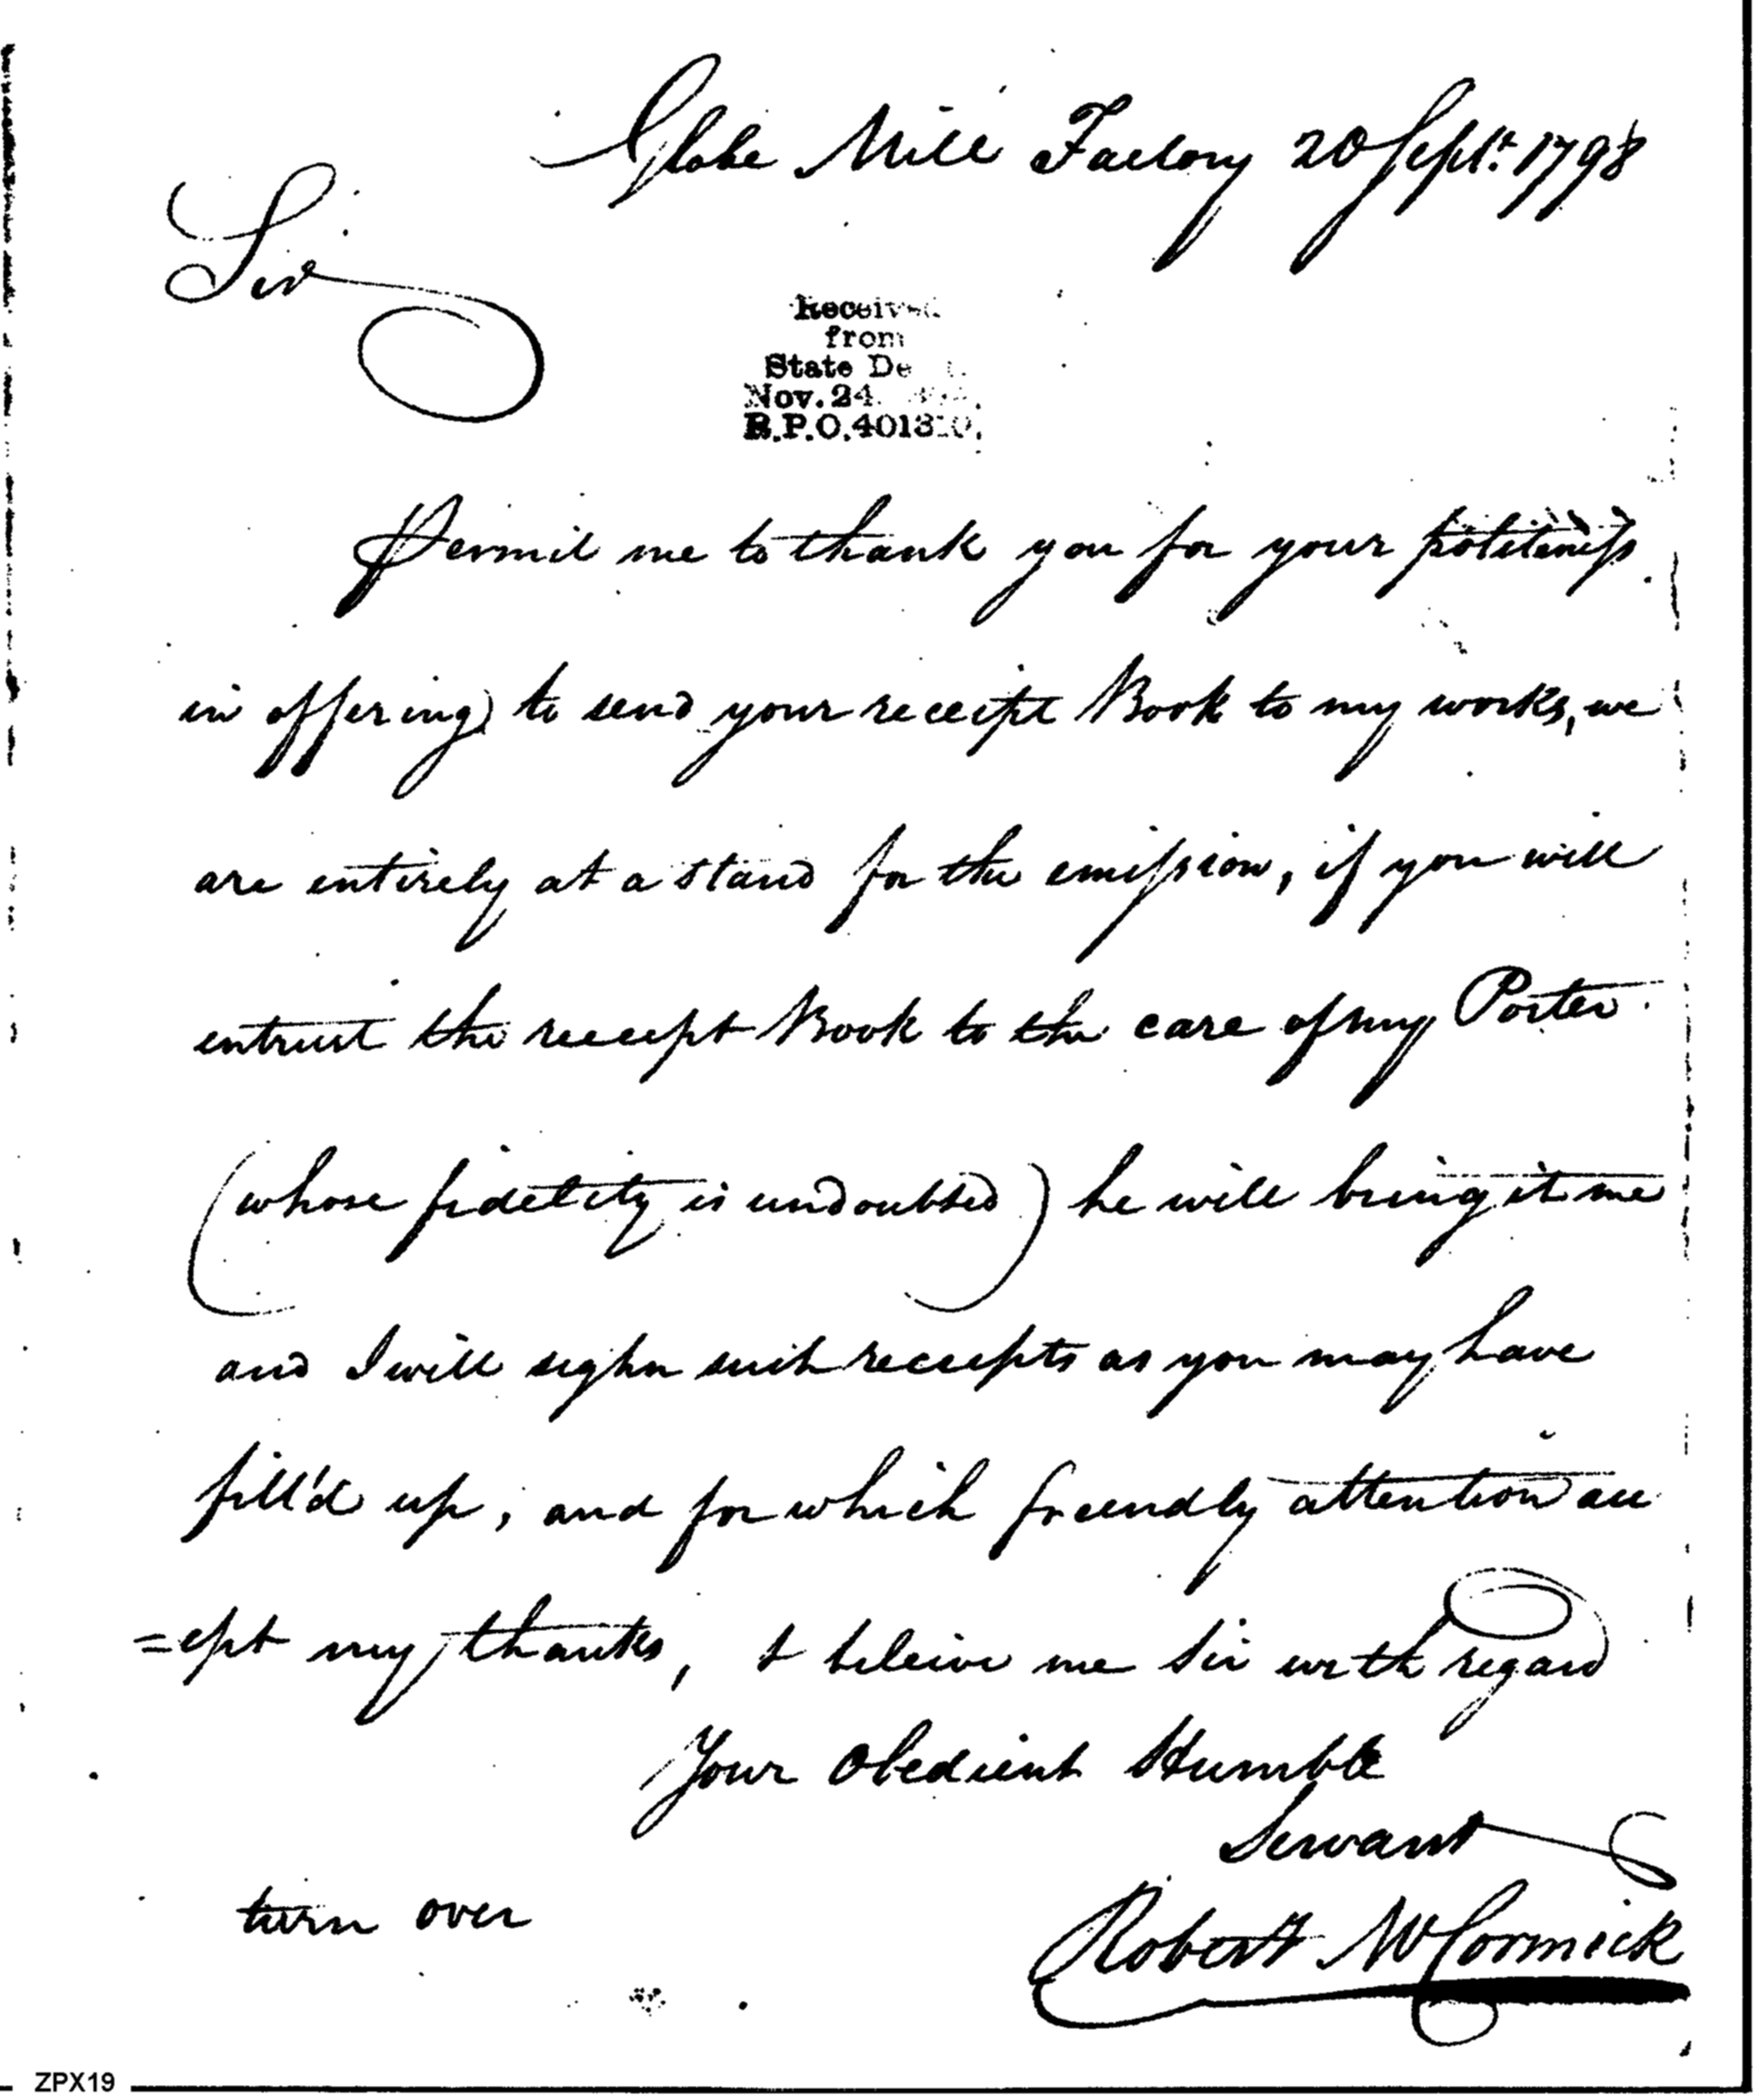 Globe Mill Factory 20 Sept. 1798
Sir
Received
from
State De
Nov. 24
R.P.O. 401310.
Permit me to thank you for your politeness
in offering to send your receipt Book to my works, we
are entirely at a stand for the emission, if you will
entrust the receipt Book to the care of my Porter
(whose fidelity is undoubted) he will bring it me
and I will sighn such receipts as you may have
fill'd up, and for which friendly attention acc
=ept my thanks, & beleive me Sir with regard
Your Obedient Humble
Servant
Robert McCormick
turn over
ZPX19